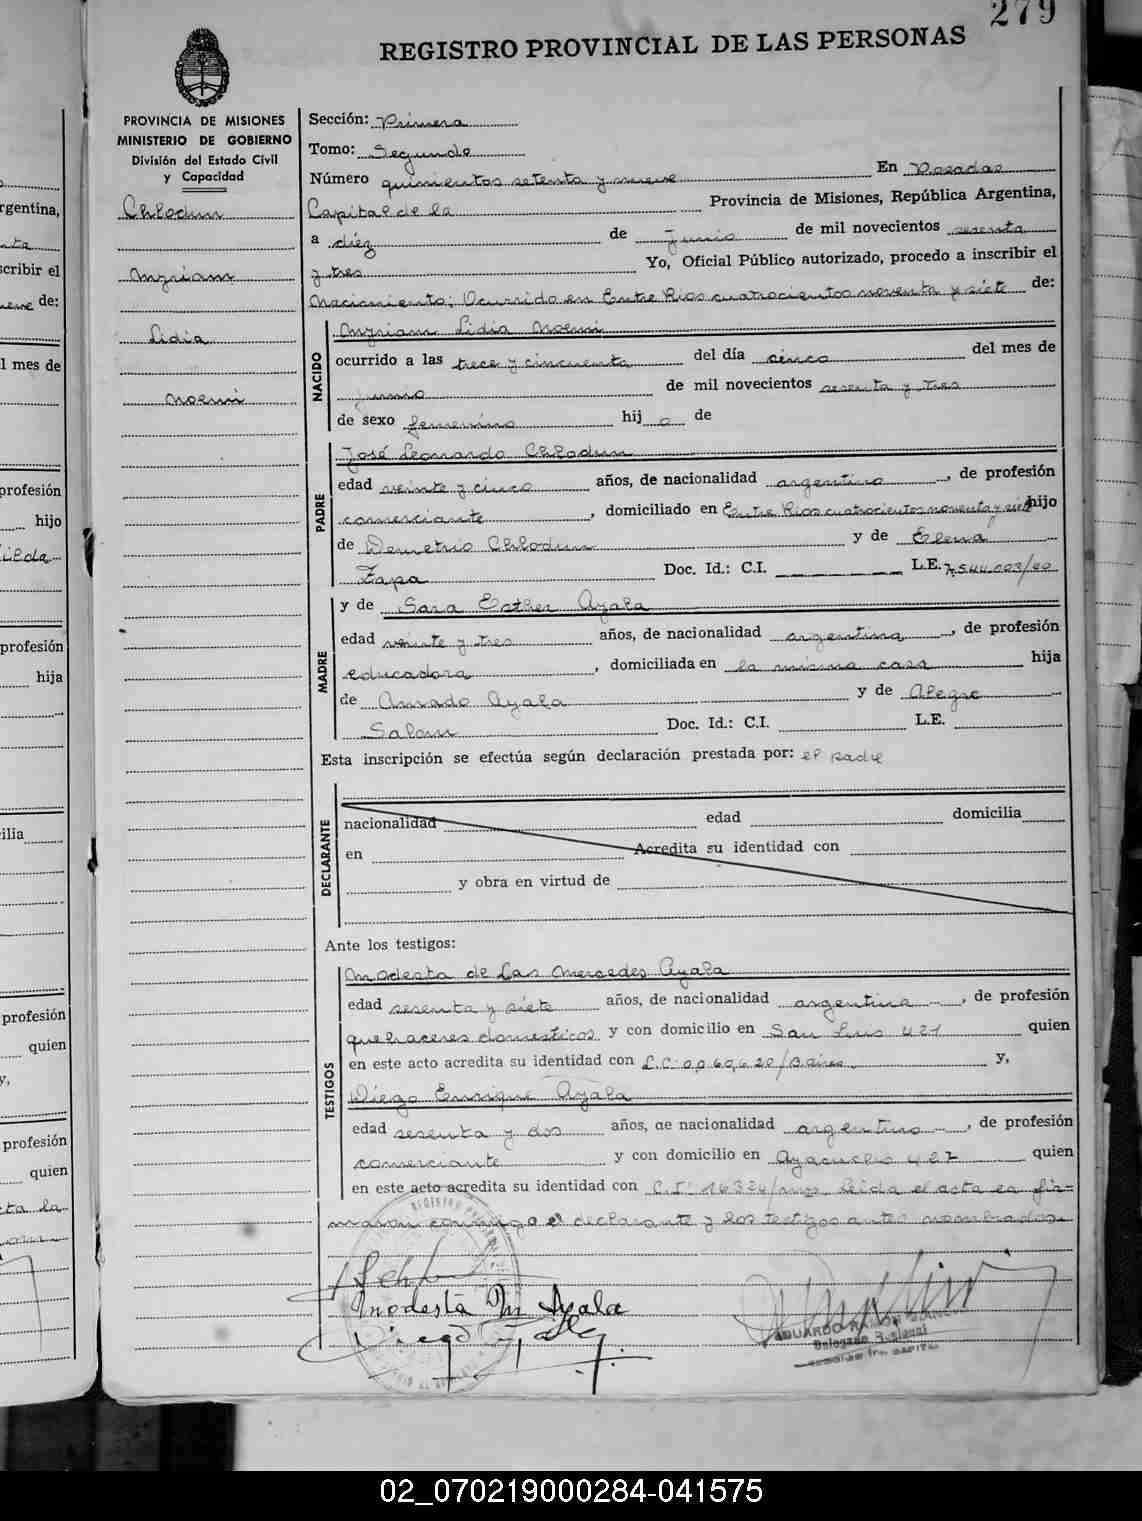 279
REGISTRO PROVINCIAL DE LAS PERSONAS
PROVINCIA DE MISIONES
MINISTERIO DE GOBIERNO
División del Estado Civil
y Capacidad
Chlodun
Myriam
Lidia
Noemi
Sección: Primera
Tomo: Segundo
Número quinientos setenta y nueve En Posadas
Capital de la Provincia de Misiones, República Argentina,
a diéz de Junio de mil novecientos sesenta
y tres Yo, Oficial Público autorizado, procedo a inscribir el
Nacimiento; Ocurrido en Entre Rios cuatrocientos noventa y siéte de:
NACIDO
Myriam Lidia Noemi
ocurrido a las trece y cincuenta del día cinco del mes de
junio de mil novecientos sesenta y tres
de sexo femenino hij a de
PADRE
José Leonardo Chlodun
edad veinte y cinco años, de nacionalidad argentino, de profesión
comerciante, domiciliado en Entre Rios cuatrocientos noventa y siete hijo
de Demetrio Chlodun y de Elena
Zapa Doc. Id.: C.I. L.E. 7.544.003/60
MADRE
y de Sara Esther Ayala
edad veinte y tres años, de nacionalidad argentina, de profesión
educadora, domiciliada en la misma casa hija
de Amado Ayala y de Alegre
Salom Doc. Id.: C.I. L.E.
Esta inscripción se efectúa según declaración prestada por: el padre
DECLARANTE
nacionalidad edad domicilia
en Acredita su identidad con
y obra en virtud de
Ante los testigos:
TESTIGOS
Modesta de Las Mercedes Ayala
edad sesenta y siéte años, de nacionalidad argentina, de profesión
quehaceres domesticos y con domicilio en San Luis 421 quien
en este acto acredita su identidad con L.C. 0,060,620/Baires. y,
Diego Enrique Ayala
edad sesenta y dos años, de nacionalidad argentino, de profesión
comerciante y con domicilio en Ayacucho 427 quien
en este acto acredita su identidad con C.I. 16324/mnes. Leida el acta la fir=
maron conmigo el declarante y los testigos antes nombrados.
Modesta M Ayala
EDUARDO RAMON
Delegado Regional
CAPITAL
rgentina,
scribir el
de:
l mes de
profesión
hijo
ilda
profesión
hija
ilia
profesión
quien
y,
profesión
quien
02_070219000284-041575